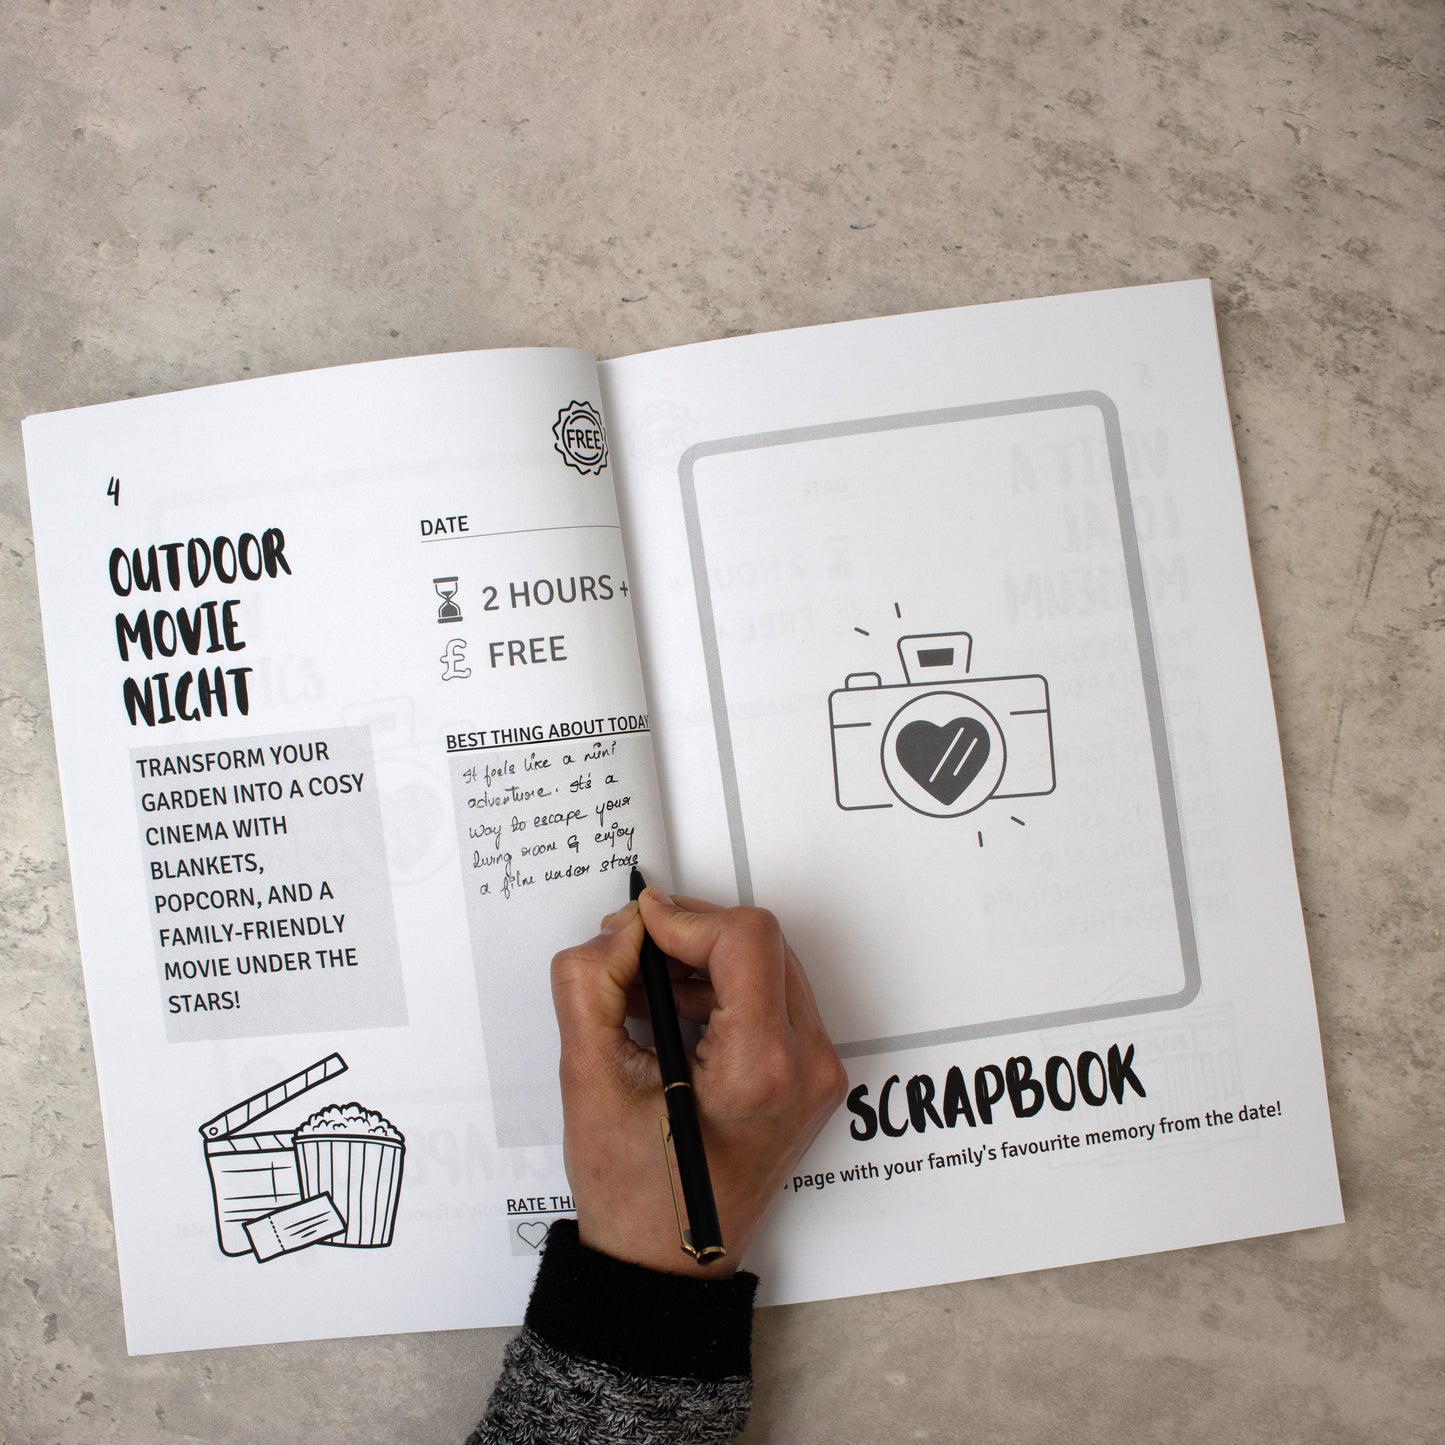 4
FREE
OUTDOOR
MOVIE
NIGHT
TRANSFORM YOUR
GARDEN INTO A COSY
CINEMA WITH
BLANKETS,
POPCORN, AND A
FAMILY-FRIENDLY
MOVIE UNDER THE
STARS!
DATE
2 HOURS +
£ FREE
BEST THING ABOUT TODAY
It feels like a mini
adventure. It's a
way to escape your
living room & enjoy
a film under stars
RATE THI
SCRAPBOOK
page with your family's favourite memory from the date!